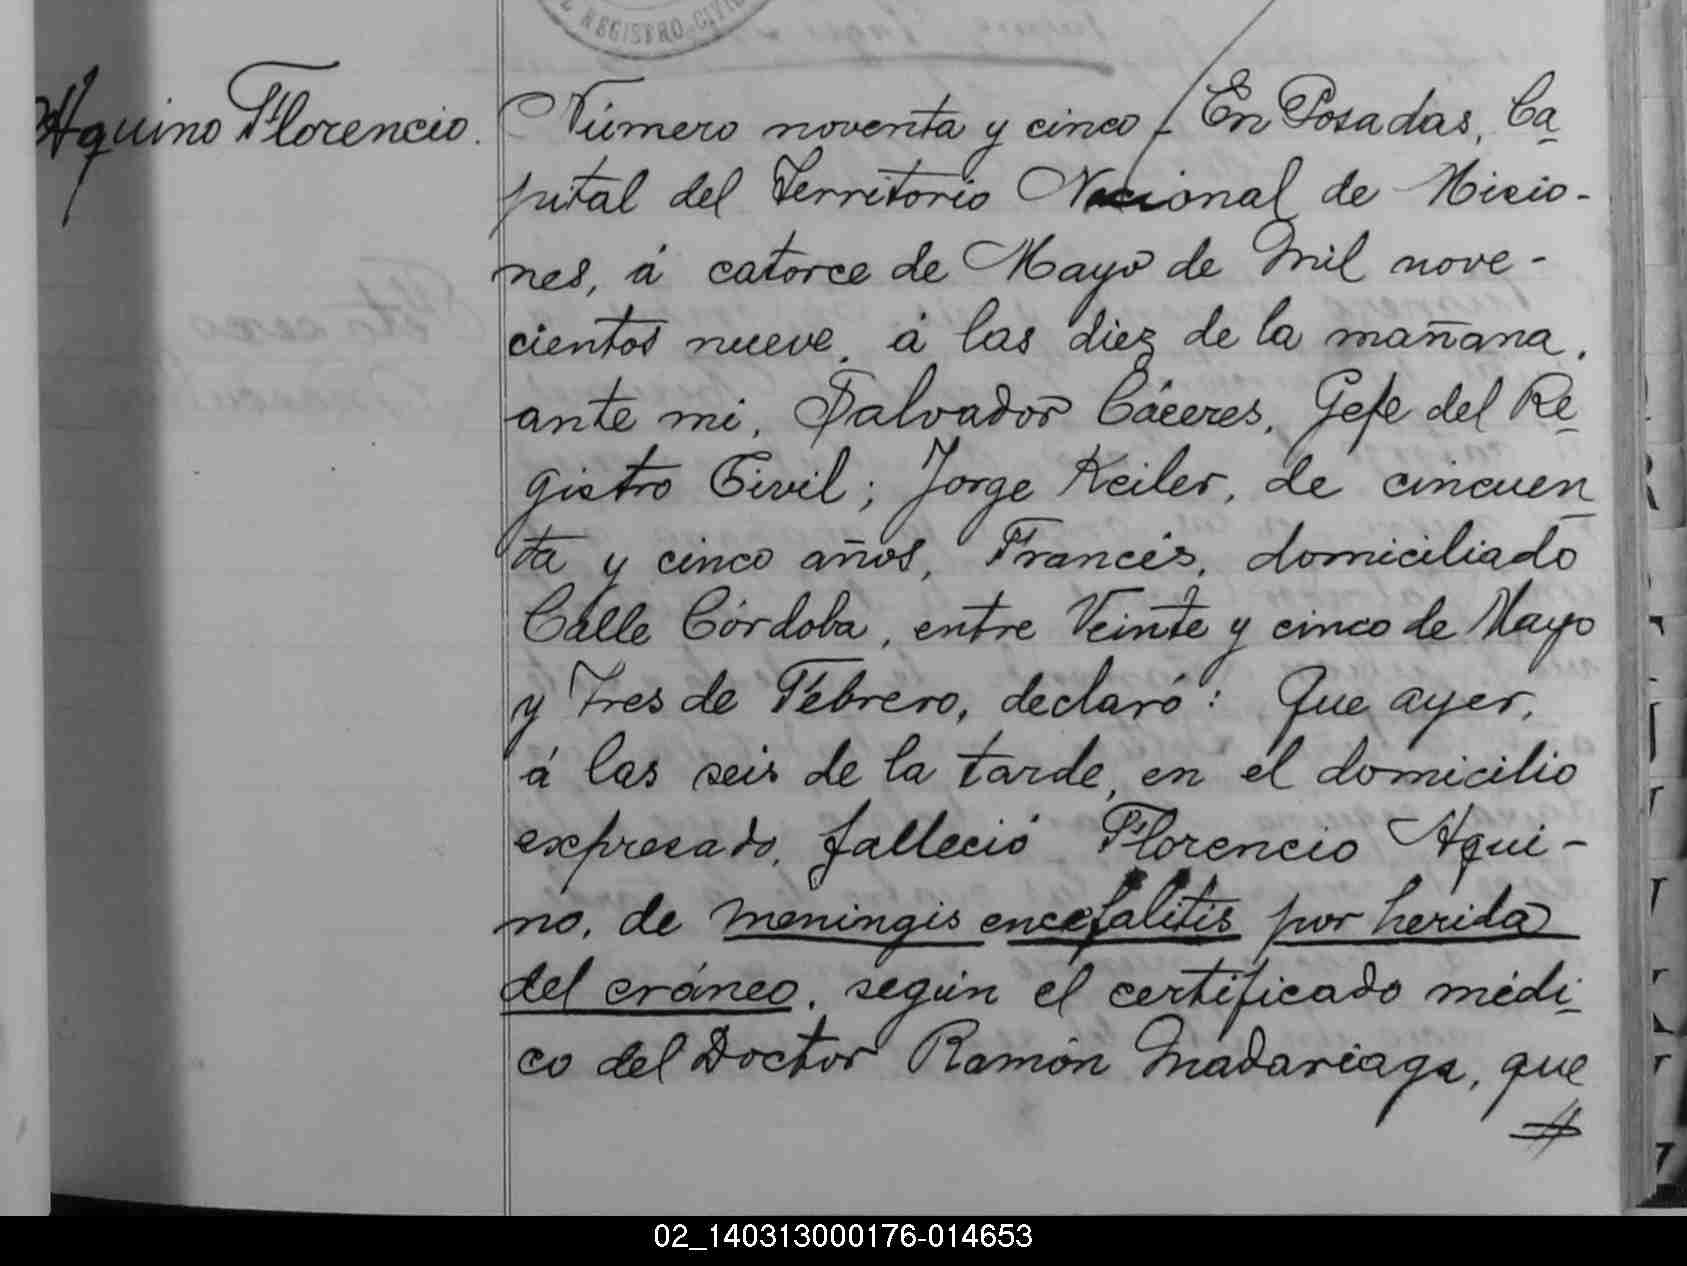 REGISTRO CIVIL
Aquino Florencio.
Número noventa y cinco - En Posadas, Ca-
pital del Territorio Nacional de Misio-
nes, á catorce de Mayo de Mil nove-
cientos nueve, á las diez de la mañana,
ante mi, Salvador Cáceres, Gefe del Re-
gistro Civil; Jorge Keiler, de cincuen-
ta y cinco años, Francés, domiciliado
Calle Córdoba, entre Veinte y cinco de Mayo
y Tres de Febrero, declaró: Que ayer,
á las seis de la tarde, en el domicilio
expresado, falleció Florencio Aqui-
no, de meningis encefalitis por herida
del cráneo, según el certificado médi-
co del Doctor Ramón Madariaga, que
02_140313000176-014653